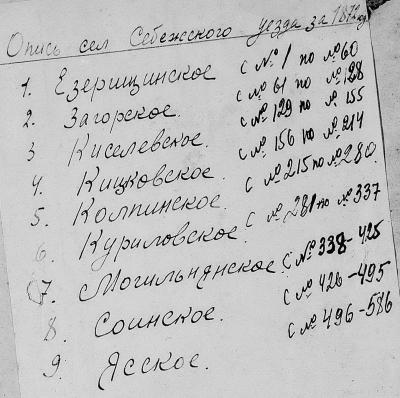 Опись сел Себежского уезда за 1872 год
1. Езерищинское с № 1 по № 60
2. Загорское. с № 61 по № 128
3 Киселевское. с № 129 по № 155
4. Кицковское. с № 156 по № 214
5. Колпинское. с № 215 по № 280.
6. Куриловское. с № 281 по № 337
7. Могильнянское с № 338-425
8. Соинское. с № 426-495
9. Ясское. с № 496-586